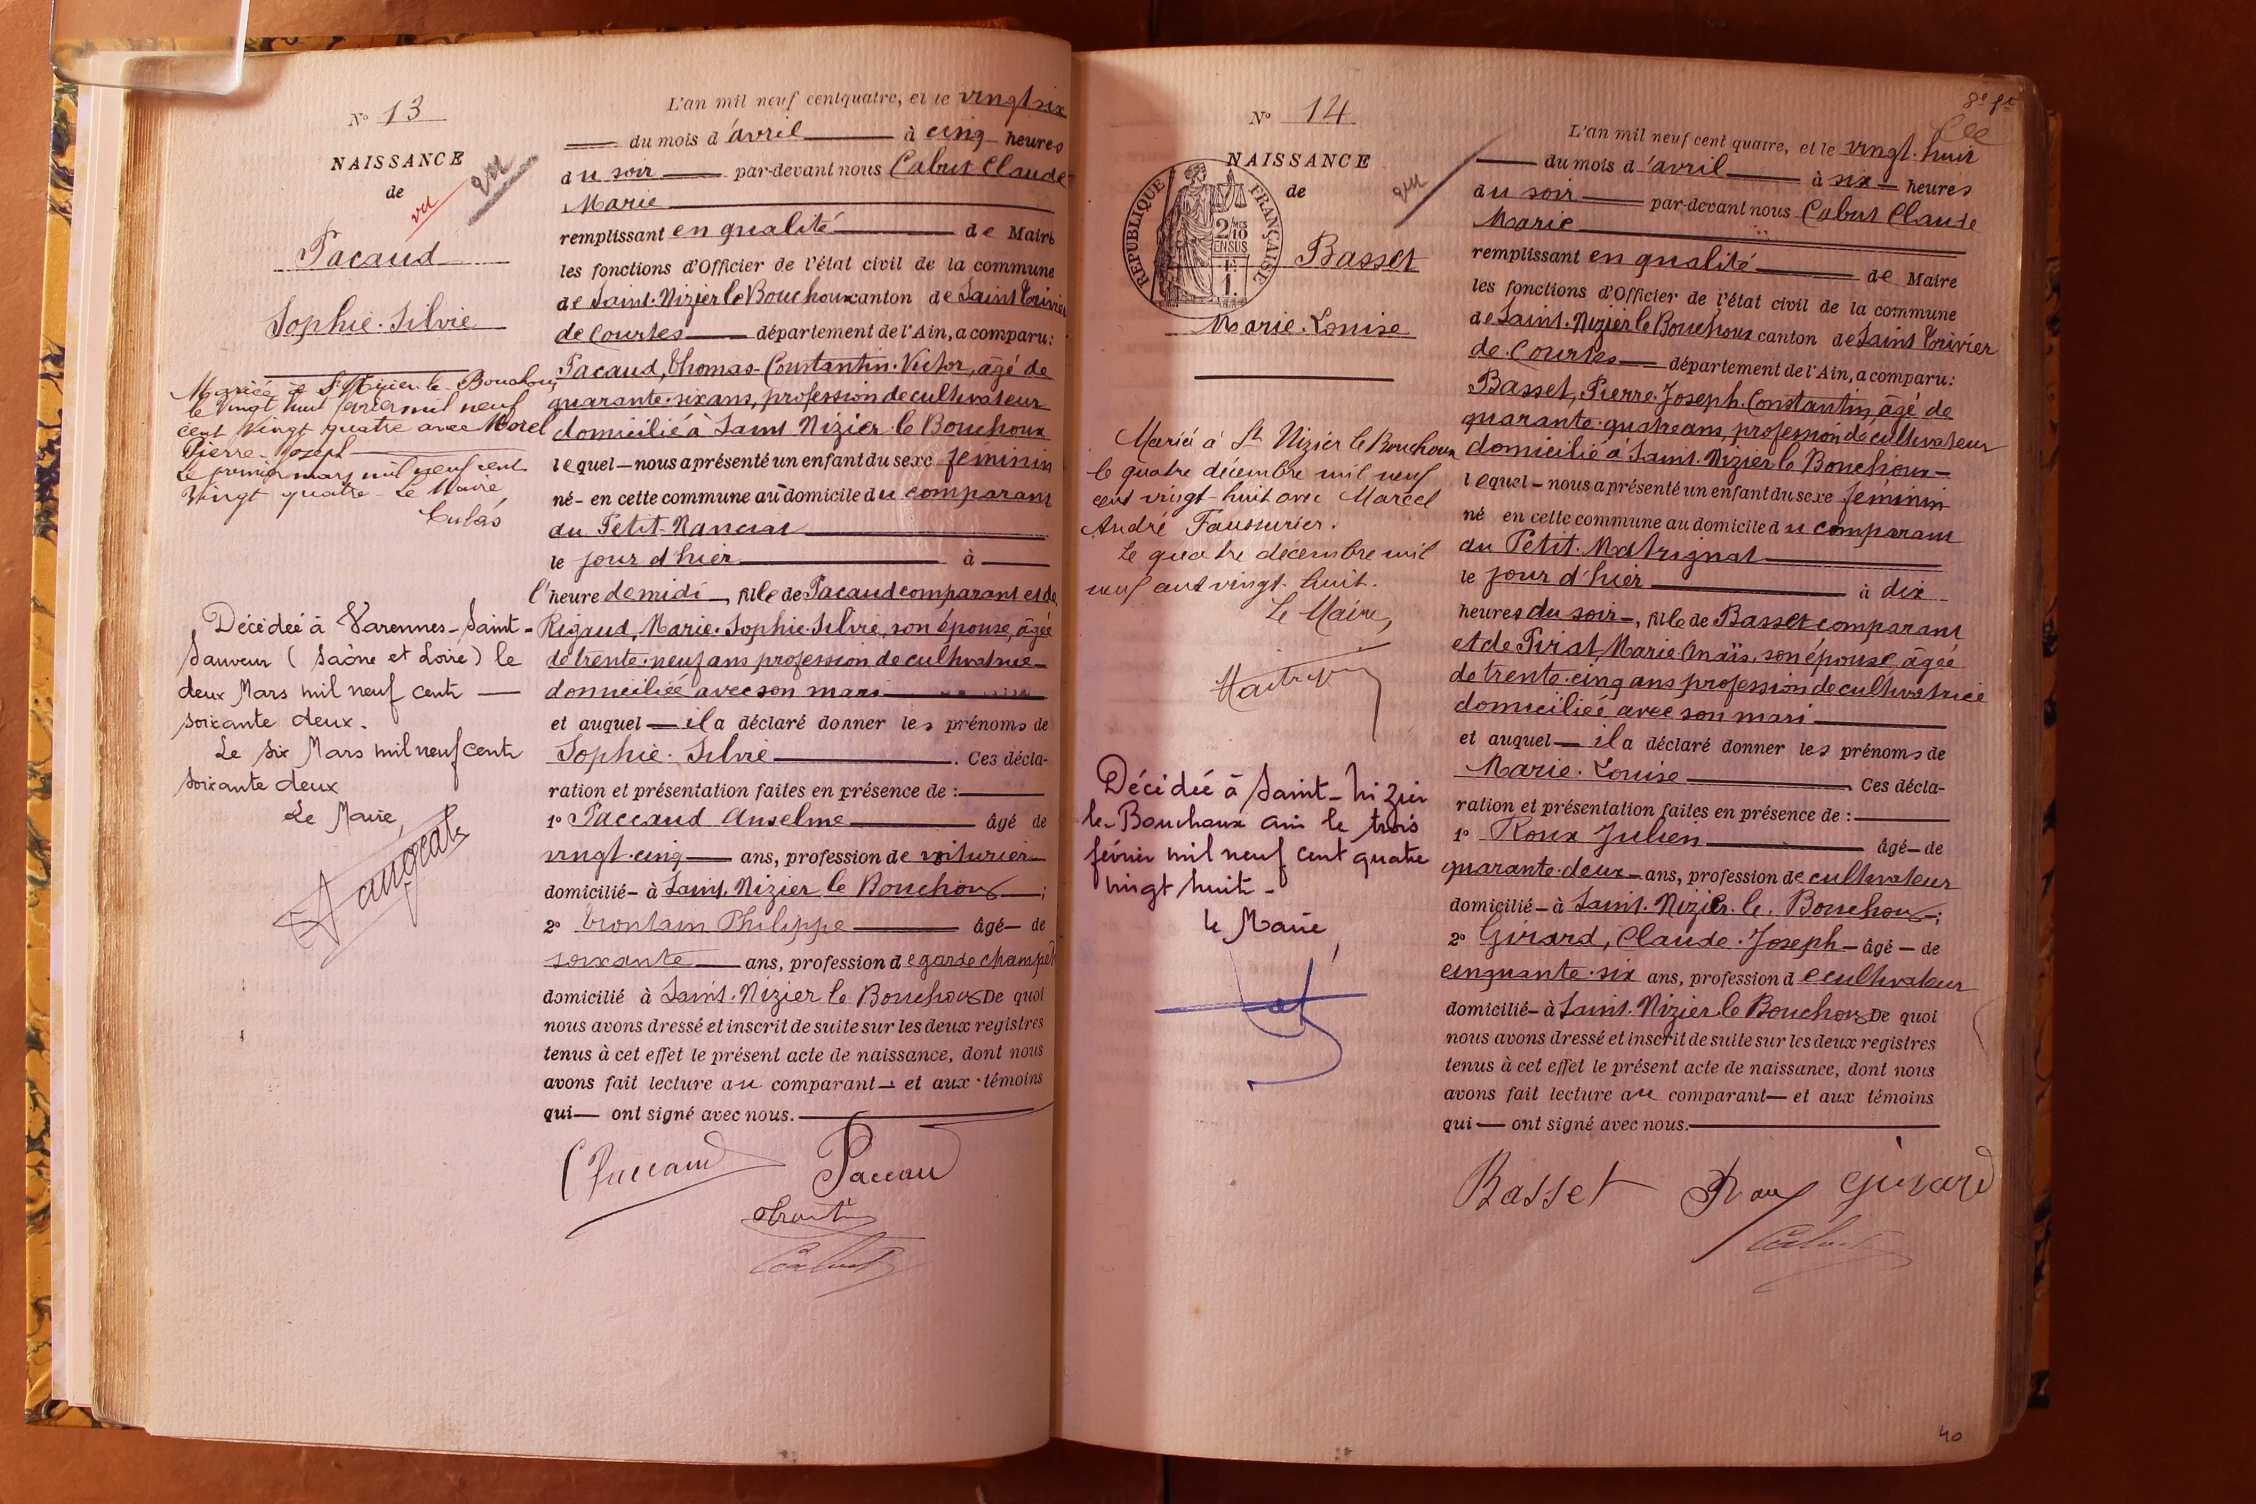 N° 13
NAISSANCE
de
vu
vu
Pacaud
Sophie-Silvie
Mariée à St Nizier-le-Bouchoux
le vingt huit février mil neuf
cent vingt quatre avec Morel
Pierre-Joseph
Le premier mars mil neuf cent
vingt quatre - Le Maire,
Décédée à Varennes-Saint-
Sauveur (Saône et Loire) le
deux Mars mil neuf cent
soixante deux.
Le six Mars mil neuf cent
soixante deux
Le Maire,
L'an mil neuf cent quatre, et le vingt six
du mois d'avril à cinq heures
du soir par-devant nous Cabut Claude-
Marie
remplissant en qualité de Maire
les fonctions d'Officier de l'état civil de la commune
de Saint-Nizier le Bouchoux canton de Saint Trivier
de Courtes département de l'Ain, a comparu:
Pacaud, Thomas-Constantin-Victor, âgé de
quarante-six ans, profession de cultivateur
domicilié à Saint Nizier-le Bouchoux
lequel - nous a présenté un enfant du sexe féminin
né - en cette commune au domicile du comparant
du Petit-Nancin
le jour d'hier à
l'heure de midi, fille de Pacaud comparant et de
Rigaud, Marie-Sophie-Silvie, son épouse, âgée
de trente-neuf ans profession de cultivatrice
domiciliée avec son mari
et auquel - il a déclaré donner les prénoms de
Sophie-Silvie. Ces décla-
ration et présentation faites en présence de :
1° Paccaud Anselme âgé de
vingt-cinq ans, profession de voiturier
domicilié - à Saint-Nizier le Bouchoux;
2° Trontain Philippe âgé - de
soixante ans, profession de garde champêt
domicilié à Saint-Nizier le Bouchoux De quoi
nous avons dressé et inscrit de suite sur les deux registres
tenus à cet effet le présent acte de naissance, dont nous
avons fait lecture au comparant - et aux témoins
qui - ont signé avec nous.
Paccaud
Paccaud
Cabut
8e ft
N° 14
NAISSANCE
de
vu
RÉPUBLIQUE FRANÇAISE
2/10
EN SUS
Basset
Marie-Louise
Marié à St Nizier le Bouchoux
le quatre décembre mil neuf
cent vingt-huit avec Marcel
André Faussurier.
Le quatre décembre mil
neuf cent vingt-huit.
Le Maire,
Décédée à Saint-Nizier
le-Bouchoux Ain le trois
février mil neuf cent quatre
vingt huit -
le Maire,
L'an mil neuf cent quatre, et le vingt-huit
du mois d'avril à six heures
du soir par-devant nous Cabut Claude
Marie
remplissant en qualité de Maire
les fonctions d'Officier de l'état civil de la commune
de Saint-Nizier le Bouchoux canton de Saint Trivier
de-Courtes département de l'Ain, a comparu:
Basset, Pierre-Joseph-Constantin, âgé de
quarante-quatre ans, profession de cultivateur
domicilié à Saint-Nizier le Bouchoux -
lequel - nous a présenté un enfant du sexe féminin
né en cette commune au domicile du comparant
du Petit-Matrignat
le jour d'hier à dix
heures du soir -, fille de Basset comparant
et de Pirat, Marie-Anaïs, son épouse, âgée
de trente-cinq ans profession de cultivatrice
domiciliée avec son mari
et auquel - il a déclaré donner les prénoms de
Marie-Louise. Ces décla-
ration et présentation faites en présence de :
1° Roux Julien âgé - de
quarante-deux - ans, profession de cultivateur
domicilié - à Saint-Nizier-le-Bouchoux -;
2° Girard, Claude-Joseph - âgé - de
cinquante-six ans, profession de cultivateur
domicilié - à Saint-Nizier-le Bouchoux De quoi
nous avons dressé et inscrit de suite sur les deux registres
tenus à cet effet le présent acte de naissance, dont nous
avons fait lecture au comparant - et aux témoins
qui - ont signé avec nous.
Basset Roux Girard
Cabut
40